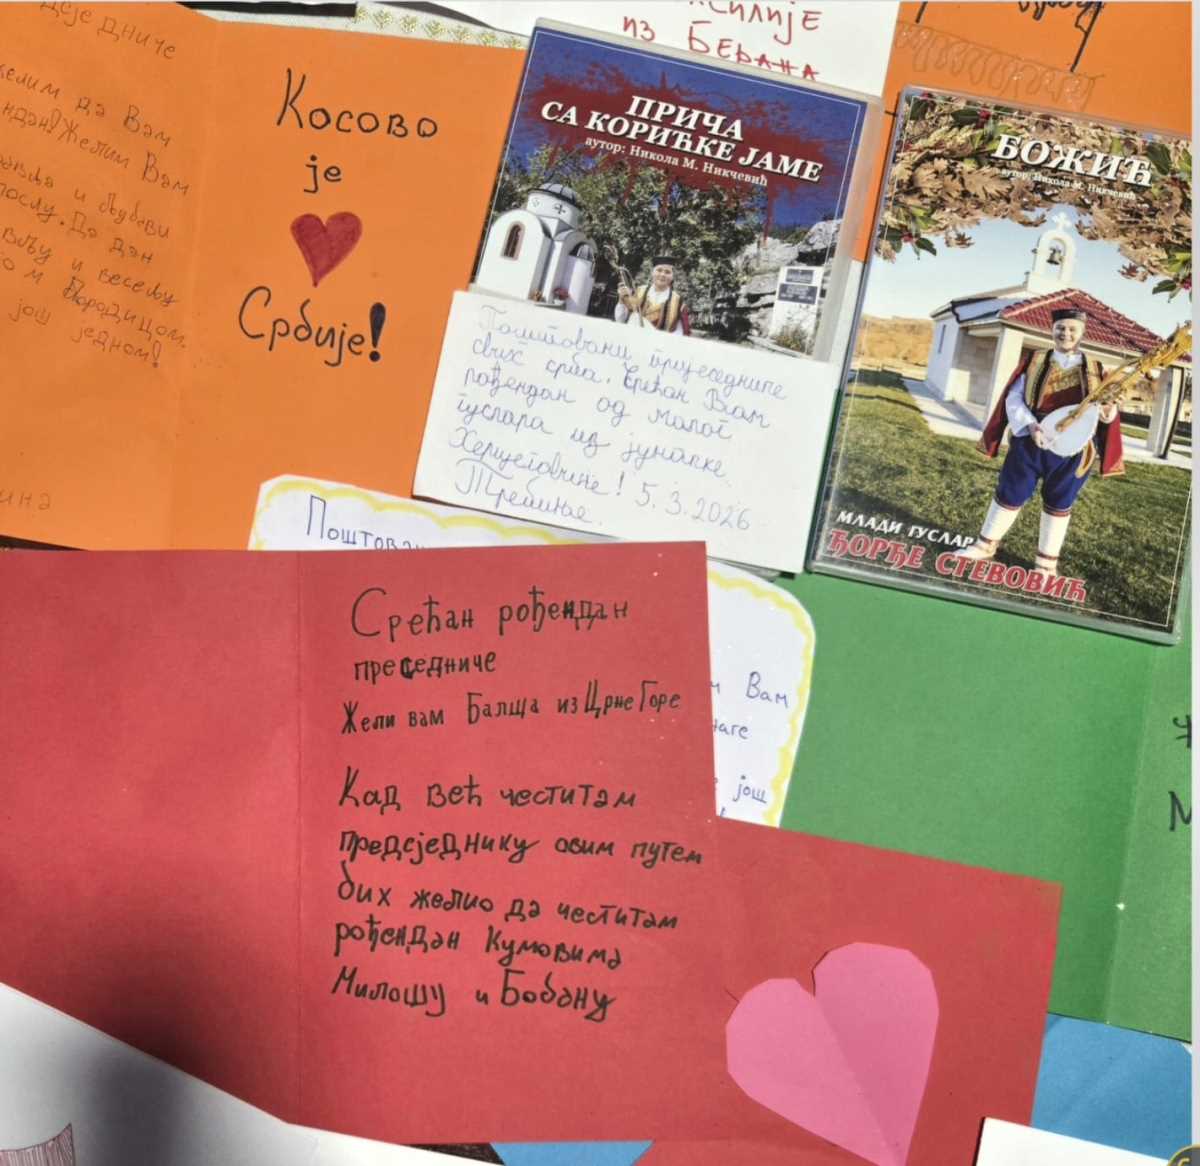 дниче
желим да Вам
Желим Вам
и љубави
послу. Да дан
и весељу
м Породицом.
још једном!
Косово
је
Србије!
из Берана
ПРИЧА
СА КОРИЋКЕ ЈАМЕ
аутор: Никола М. Никчевић
Поштовани прједседниче
свих срба. Срећан Вам
рођендан од малог
гуслара из јуначке
Херцеговине! 5.3.2026
Требиње.
БОЖИЋ
аутор: Никола М. Никчевић
МЛАДИ ГУСЛАР
ЂОРЂЕ СТЕВОВИЋ
Срећан рођендан
преседниче
Жели вам Балша из Црне Горе
Кад већ честитам
предсједнику овим путем
бих желио да честитам
рођендан Кумовима
Милошу и Бобану
Вам
још